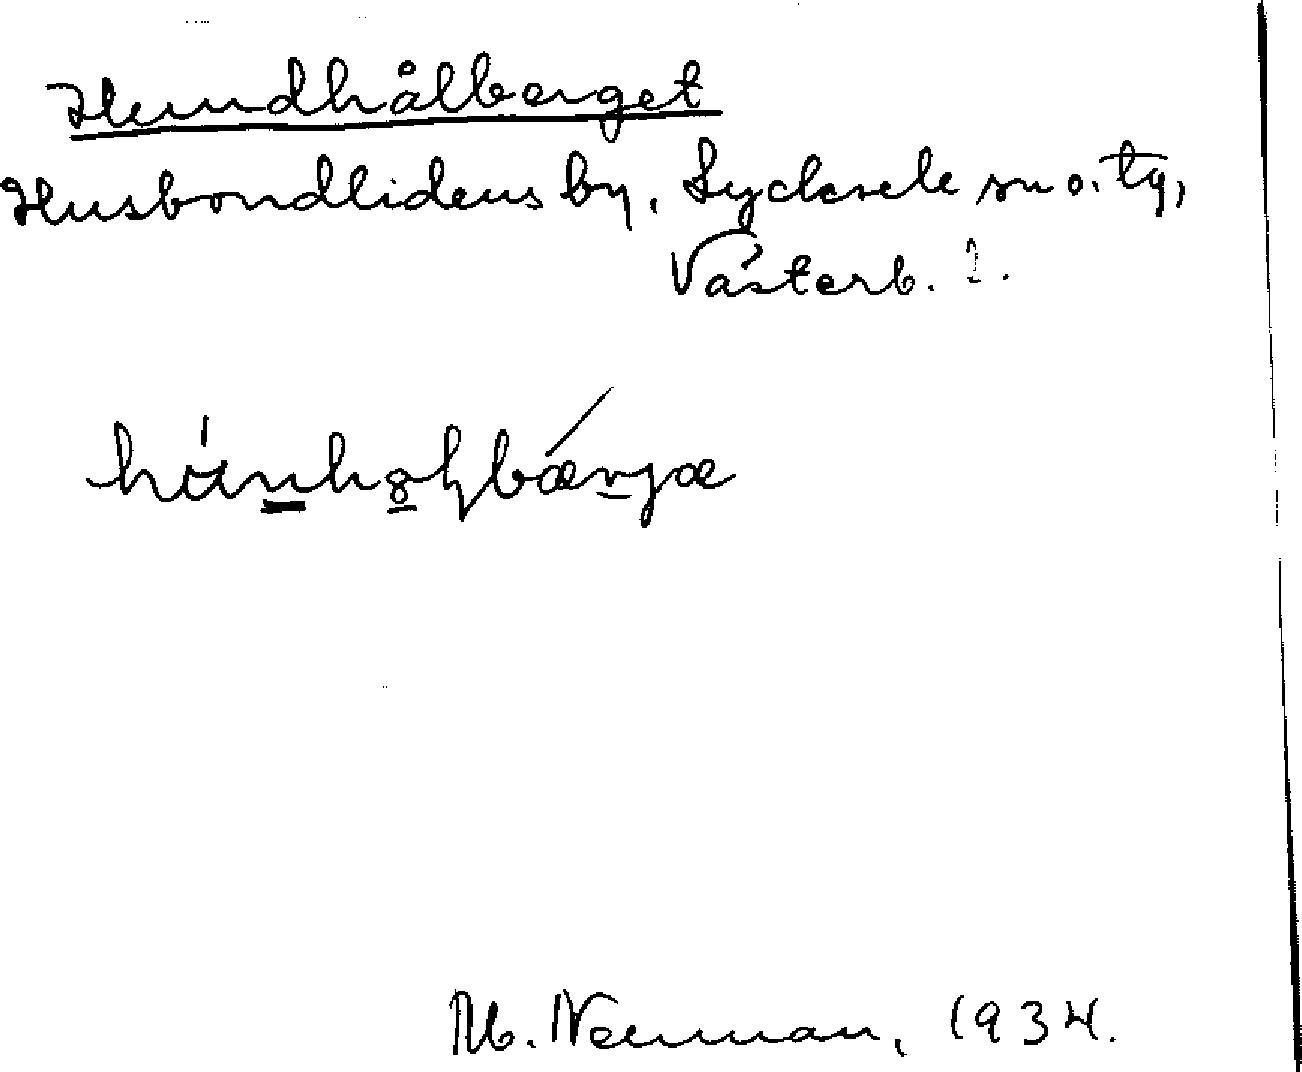 Hundhålberget
Husbondlidens by, Lycksele sn o. tg,
Västerb. l.
M. Neuman, 1934.